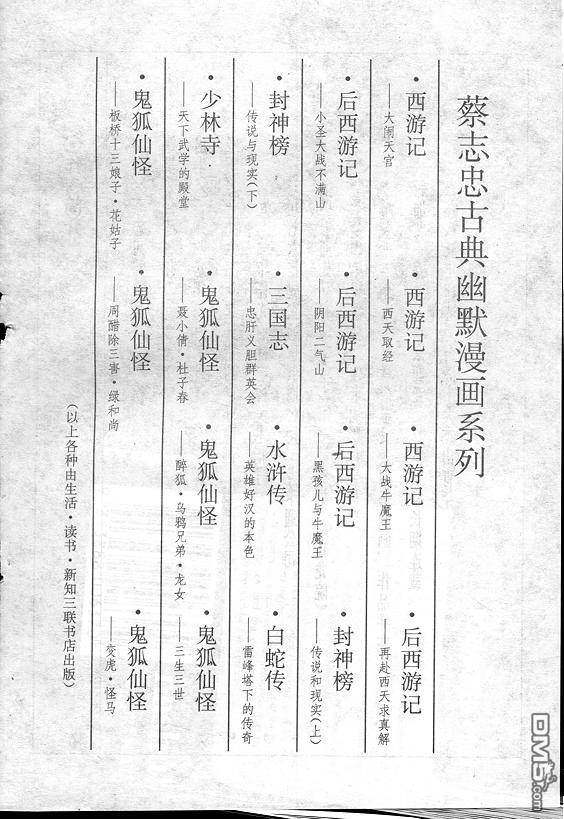 蔡志忠古典幽默漫画系列
•西游记
——大闹天宫
•西游记
——西天取经
•西游记
——大战牛魔王
•后西游记
——再赴西天求真解
•后西游记
——小圣大战不满山
•后西游记
——阴阳二气山
•后西游记
——黑孩儿与牛魔王
•封神榜
——传说和现实(上)
•封神榜
——传说与现实(下)
•三国志
——忠肝义胆群英会
•水浒传
——英雄好汉的本色
•白蛇传
——雷峰塔下的传奇
•少林寺
——天下武学的殿堂
•鬼狐仙怪
——聂小倩•杜子春
•鬼狐仙怪
——醉狐•乌鸦兄弟•龙女
•鬼狐仙怪
——三生三世
•鬼狐仙怪
——板桥十三娘子•花姑子
•鬼狐仙怪
——周醋除三害•绿和尚
•鬼狐仙怪
——变虎•怪马
(以上各种由生活•读书•新知三联书店出版)
DM5.com